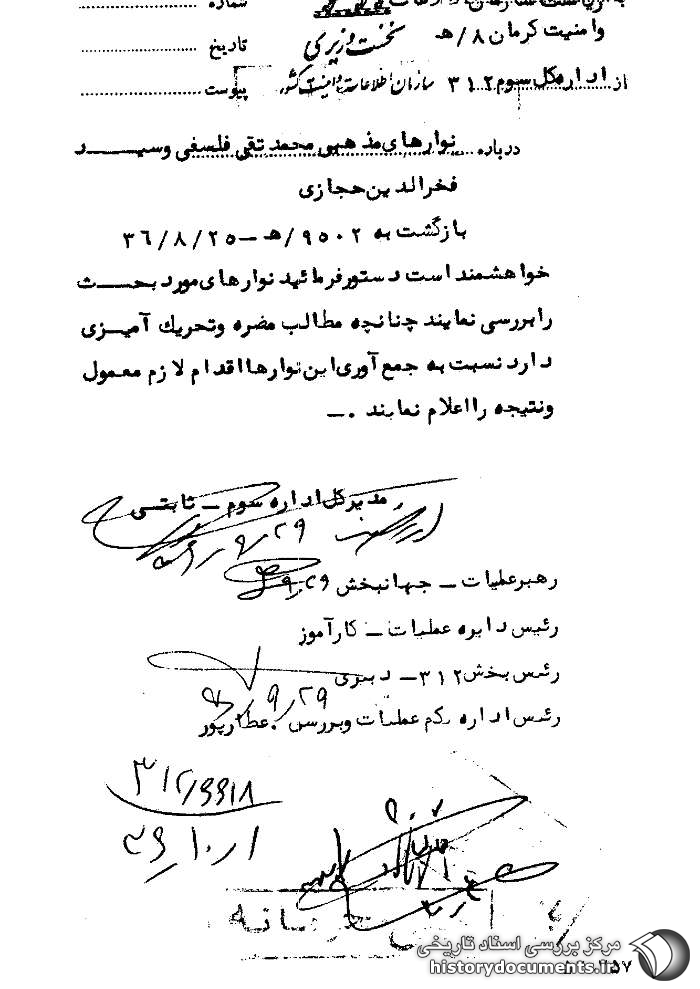 شماره
وامنیت کرمان ۸/هـ
نخست وزیری
تاریخ
سازمان اطلاعات و امنیت کشور
از اداره کل سوم ۳۱۲
پیوست
درباره نوارهای مذهبی محمد تقی فلسفی وسیــــد
فخرالدین حجازی
بازگشت به ۹۵۰۲/هـ -۳۶/۸/۲۵
خواهشمند است دستورفرمائید نوارهای مورد بحـــث
را بررسی نمایند چنانچه مطالب مضره وتحریك آمیزی
دارد نسبت به جمع آوری این نوارها اقدام لازم معمول
ونتیجه را اعلام نمایند .-
مدیرکل اداره سوم - ثابتی
۹/۲۹
رهبرعملیات - جهانبخش ۹/۲۹
رئیس دایره عملیات - کارآموز
رئیس بخش ۳۱۲- دبیری
۹/۲۹
رئیس اداره یکم عملیات وبررسی . عطارپور
۳۱۲/۶۶۱۸
۳۶/۱۰/۱
مرکز بررسی اسناد تاریخی
historydocuments.ir
۲۵۷